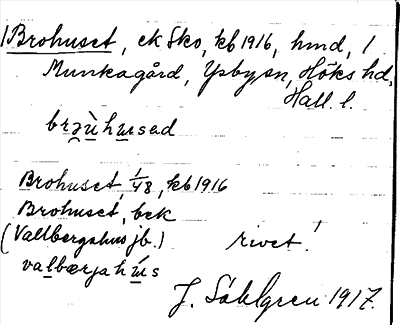 1 Brohuset, ek Sko, kb 1916, hmd, 1
Munkagård, Ysby sn, Höks hd,
Hall. l.
Brohuset 1/48, kb 1916
Brohuset, bek
(Vallbergahus jb.) rivet!
valbærjahús
J. Sahlgren 1917.